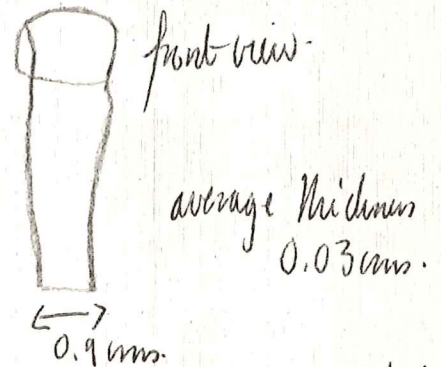 front view.
average thickness
0.03 cms.
0.9 cms.